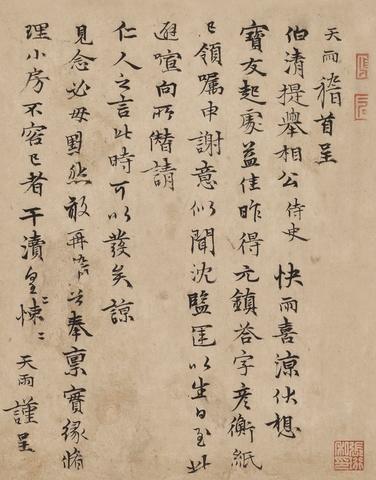 天雨稽首呈
伯清提舉相公侍史 快雨喜涼伏想
寶友起處益佳昨得元鎮荅字彥衡紙
已領囑申謝意似聞沈監匡以生日至此
避喧向所僭請
仁人之言此時可以發矣諒
見念必毋默然敢再啓茲奉稟實緣脩
理小房不容已者干瀆皇=悚=
天雨謹呈